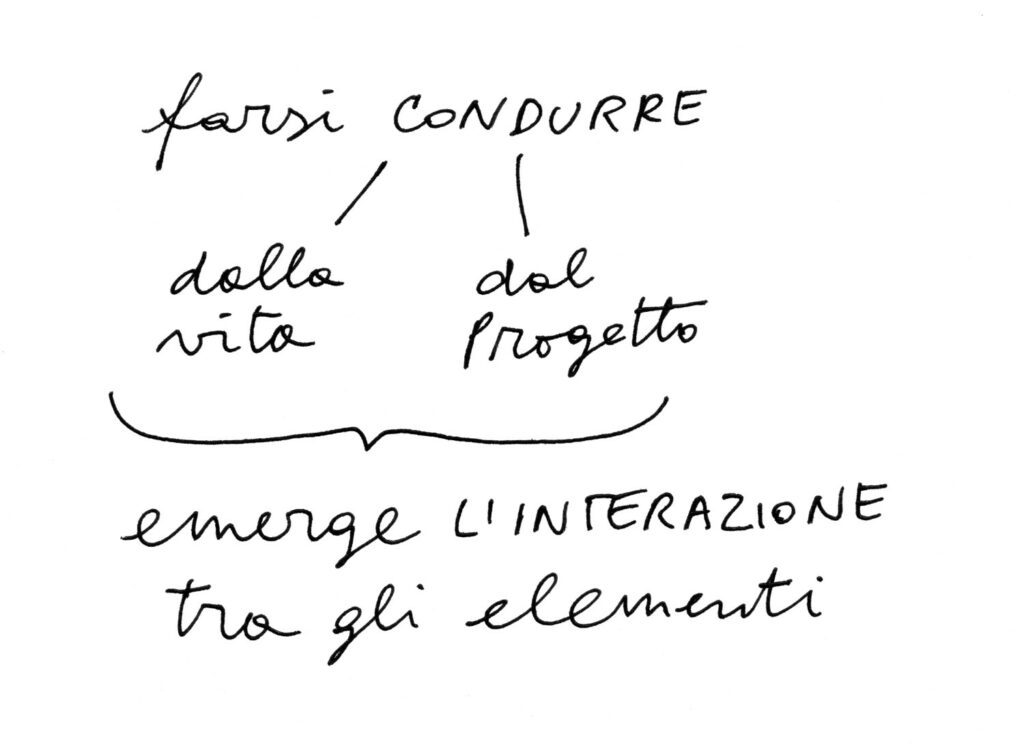 farsi CONDURRE
dalla dal
vita Progetto
emerge L'INTERAZIONE
tra gli elementi